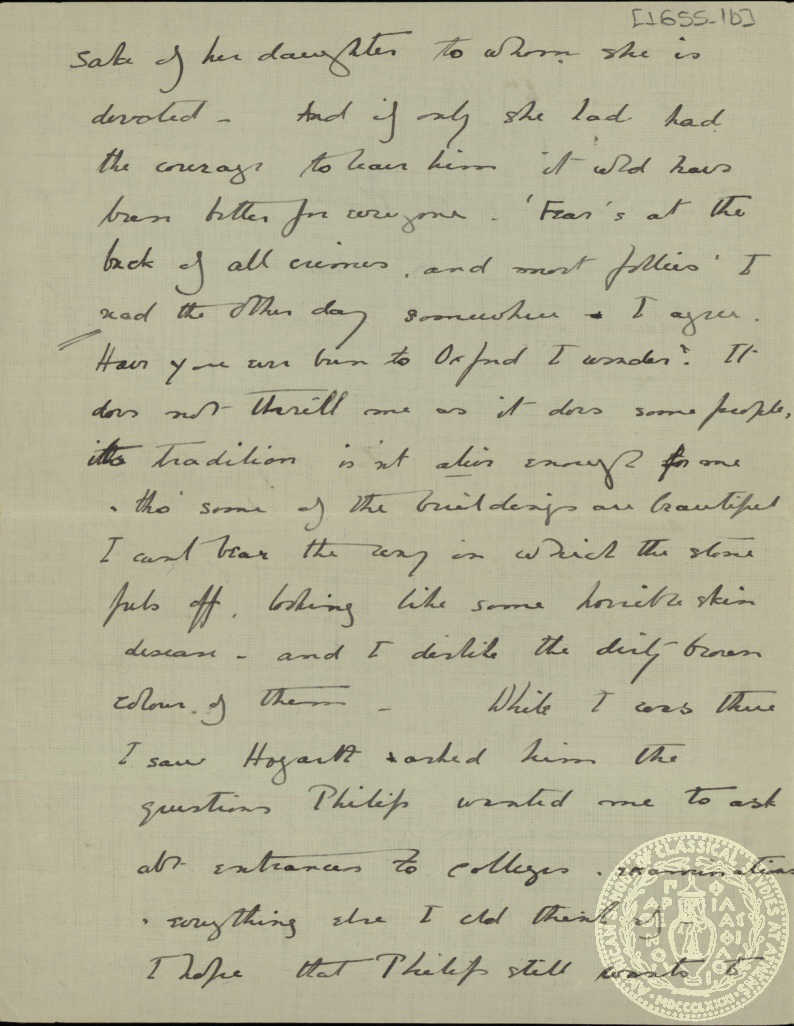 [1655-1b]
sake of her daughter to whom she is
devoted - And if only she had had
the courage to leave him it wld have
been better for everyone. 'Fear's at the
back of all crimes, and most follies' I
read the other day somewhere - I agree.
Have you ever been to Oxford I wonder? It
does not thrill me as it does some people,
its tradition isn't alive enough for me
& tho' some of the buildings are beautiful
I cant bear the way in which the stone
peels off, looking like some horrible skin
disease - and I dislike the dirty brown
colour of them - While I was there
I saw Hogarth & asked him the
questions Philip wanted me to ask
abt entrances to colleges & examinations
& everything else I cld think of
I hope that Philip still wants to
AMERICAN SCHOOL OF CLASSICAL STUDIES AT ATHENS
MDCCCLXXXI